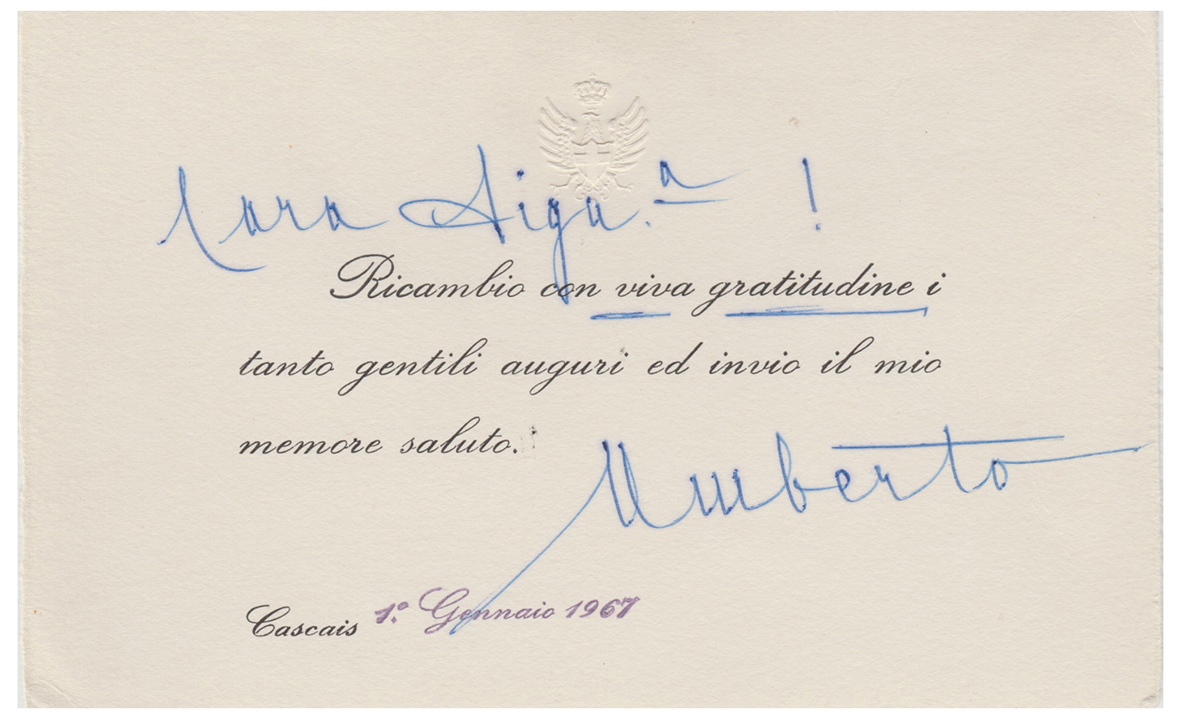 Cara Sign.ª !
Ricambio con viva gratitudine i
tanto gentili auguri ed invio il mio
memore saluto.
Umberto
Cascais 1.º Gennaio 1967